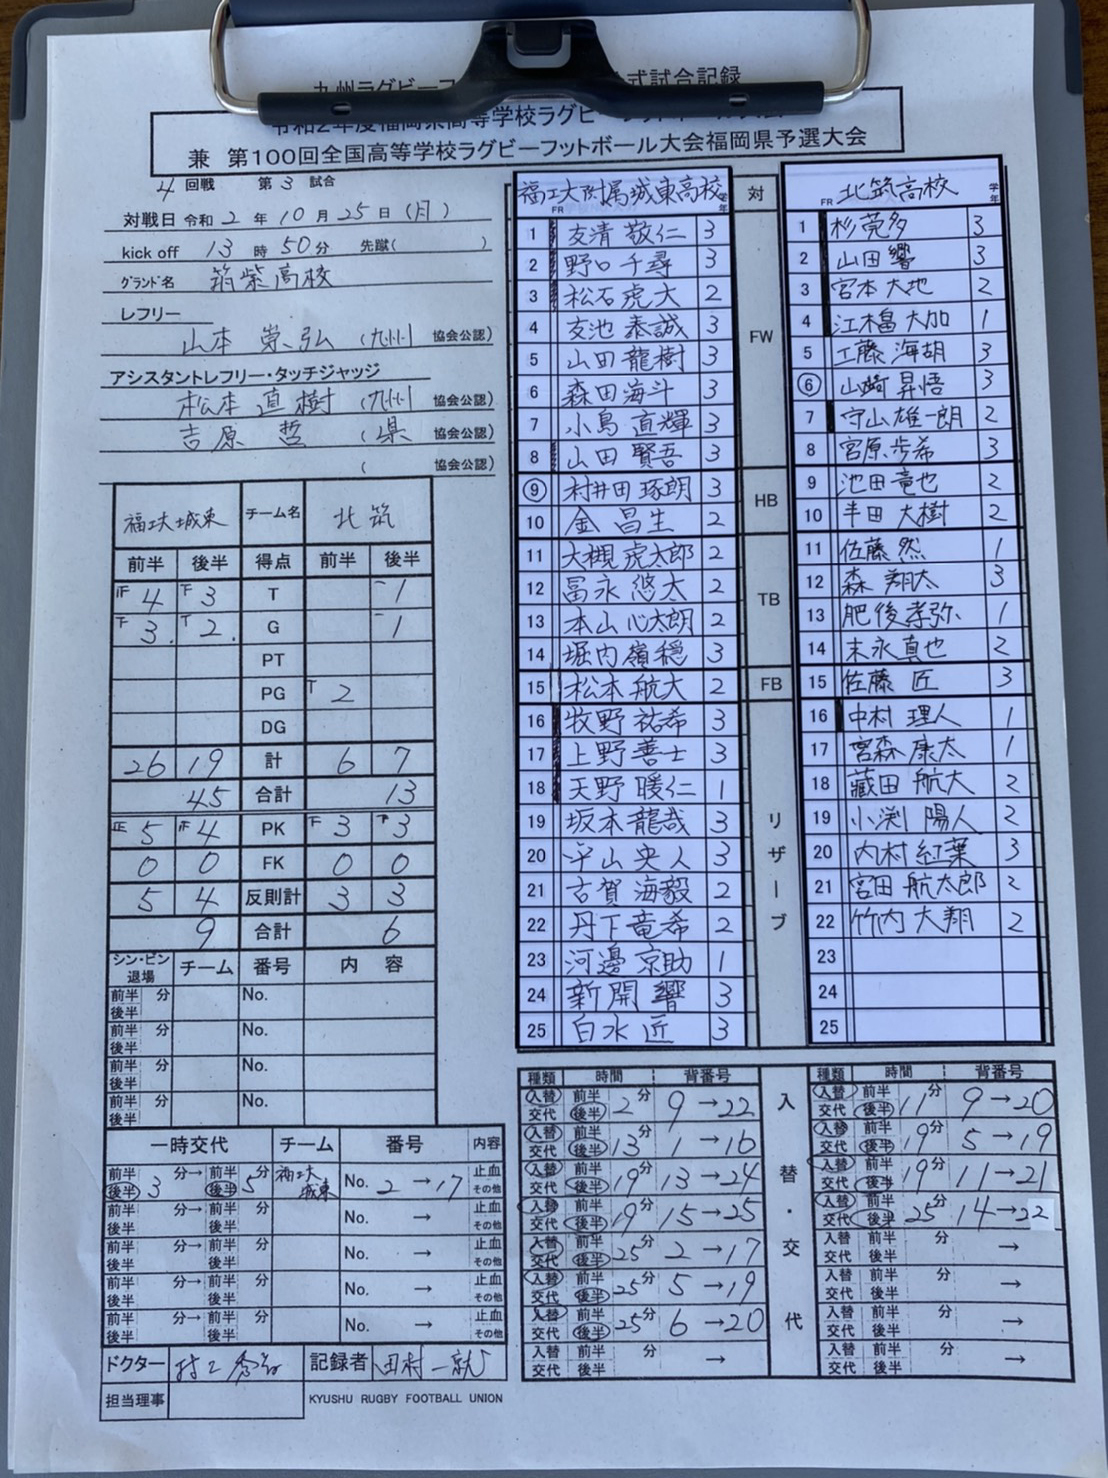 九州ラグビーフ 式試合記録
令和2年度福岡県高等学校ラグビー
兼 第100回全国高等学校ラグビーフットボール大会福岡県予選大会
4回戦 第3試合
対戦日 令和 2 年 10 月 25 日 (月)
kick off 13 時 50 分 先蹴( )
グランド名 筑紫高校
レフリー
山本 崇弘 (九州 協会公認)
アシスタントレフリー・タッチジャッジ
松本 直樹 (九州 協会公認)
吉原 哲 (県 協会公認)
( 協会公認)
福工大城東 チーム名 北筑
前半 後半 得点 前半 後半
正 4 下 3 T 一 1
下 3 T 2 G 一 1
PT
PG T 2
DG
26 19 計 6 7
45 合計 13
正 5 4 PK 下 3 下 3
0 0 FK 0 0
5 4 反則計 3 3
9 合計 6
シン・ビン 退場 チーム 番号 内 容
前半 分 後半 No.
前半 分 後半 No.
前半 分 後半 No.
前半 分 後半 No.
一時交代 チーム 番号 内容
前半 後半 3 分→ 前半 後半 5 分 福工大城東 No. 2 → 17 止血 その他
前半 後半 分→ 前半 後半 分 No. → 止血 その他
前半 後半 分→ 前半 後半 分 No. → 止血 その他
前半 後半 分→ 前半 後半 分 No. → 止血 その他
前半 後半 分→ 前半 後半 分 No. → 止血 その他
ドクター 記録者 田村 一就
担当理事 KYUSHU RUGBY FOOTBALL UNION
福工大附属城東高校 学年
FR
1 友清 敬仁 3
2 野口 千尋 3
3 松石 虎大 2
4 友池 泰誠 3
5 山田 龍樹 3
6 森田 海斗 3
7 小島 直輝 3
8 山田 賢吾 3
9 村井田 琢朗 3
10 金 昌生 2
11 大槻 虎太郎 2
12 冨永 悠太 2
13 本山 心太朗 2
14 堀内 嶺穏 3
15 松本 航大 2
16 牧野 祐希 3
17 上野 善士 3
18 天野 暖仁 1
19 坂本 龍哉 3
20 平山 央人 3
21 古賀 海毅 2
22 丹下 竜希 2
23 河邊 京助 1
24 新開 響 3
25 白水 匠 3
対
FW
HB
TB
FB
リザーブ
北筑高校 学年
FR
1 杉 莞多 3
2 山田 響 3
3 宮本 大地 2
4 江畠 大加 1
5 工藤 海胡 3
6 山崎 昇悟 3
7 守山 雄一朗 2
8 宮原 歩希 3
9 池田 竜也 2
10 半田 大樹 2
11 佐藤 然 1
12 森 翔太 3
13 肥後 孝弥 1
14 末永 真也 2
15 佐藤 匠 3
16 中村 理人 1
17 宮森 康太 1
18 蔵田 航大 2
19 小渕 陽人 2
20 内村 紅葉 3
21 宮田 航太郎 2
22 竹内 大翔 2
23
24
25
種類 時間 背番号
入替 交代 前半 後半 2 分 9 → 22
入替 交代 前半 後半 13 分 1 → 16
入替 交代 前半 後半 19 分 13 → 24
入替 交代 前半 後半 19 分 15 → 25
入替 交代 前半 後半 25 分 2 → 17
入替 交代 前半 後半 25 分 5 → 19
入替 交代 前半 後半 25 分 6 → 20
入替 交代 前半 後半 分 →
入替・交代
種類 時間 背番号
入替 交代 前半 後半 11 分 9 → 20
入替 交代 前半 後半 19 分 5 → 19
入替 交代 前半 後半 19 分 11 → 21
入替 交代 前半 後半 25 分 14 → 22
入替 交代 前半 後半 分 →
入替 交代 前半 後半 分 →
入替 交代 前半 後半 分 →
入替 交代 前半 後半 分 →